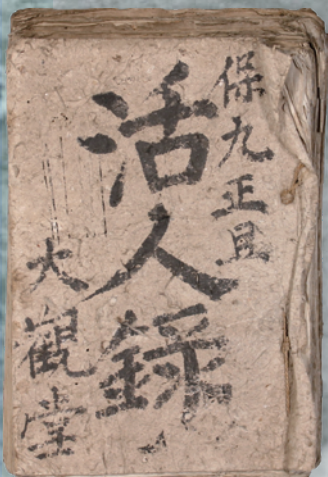 保九正旦
活人録
大觀堂